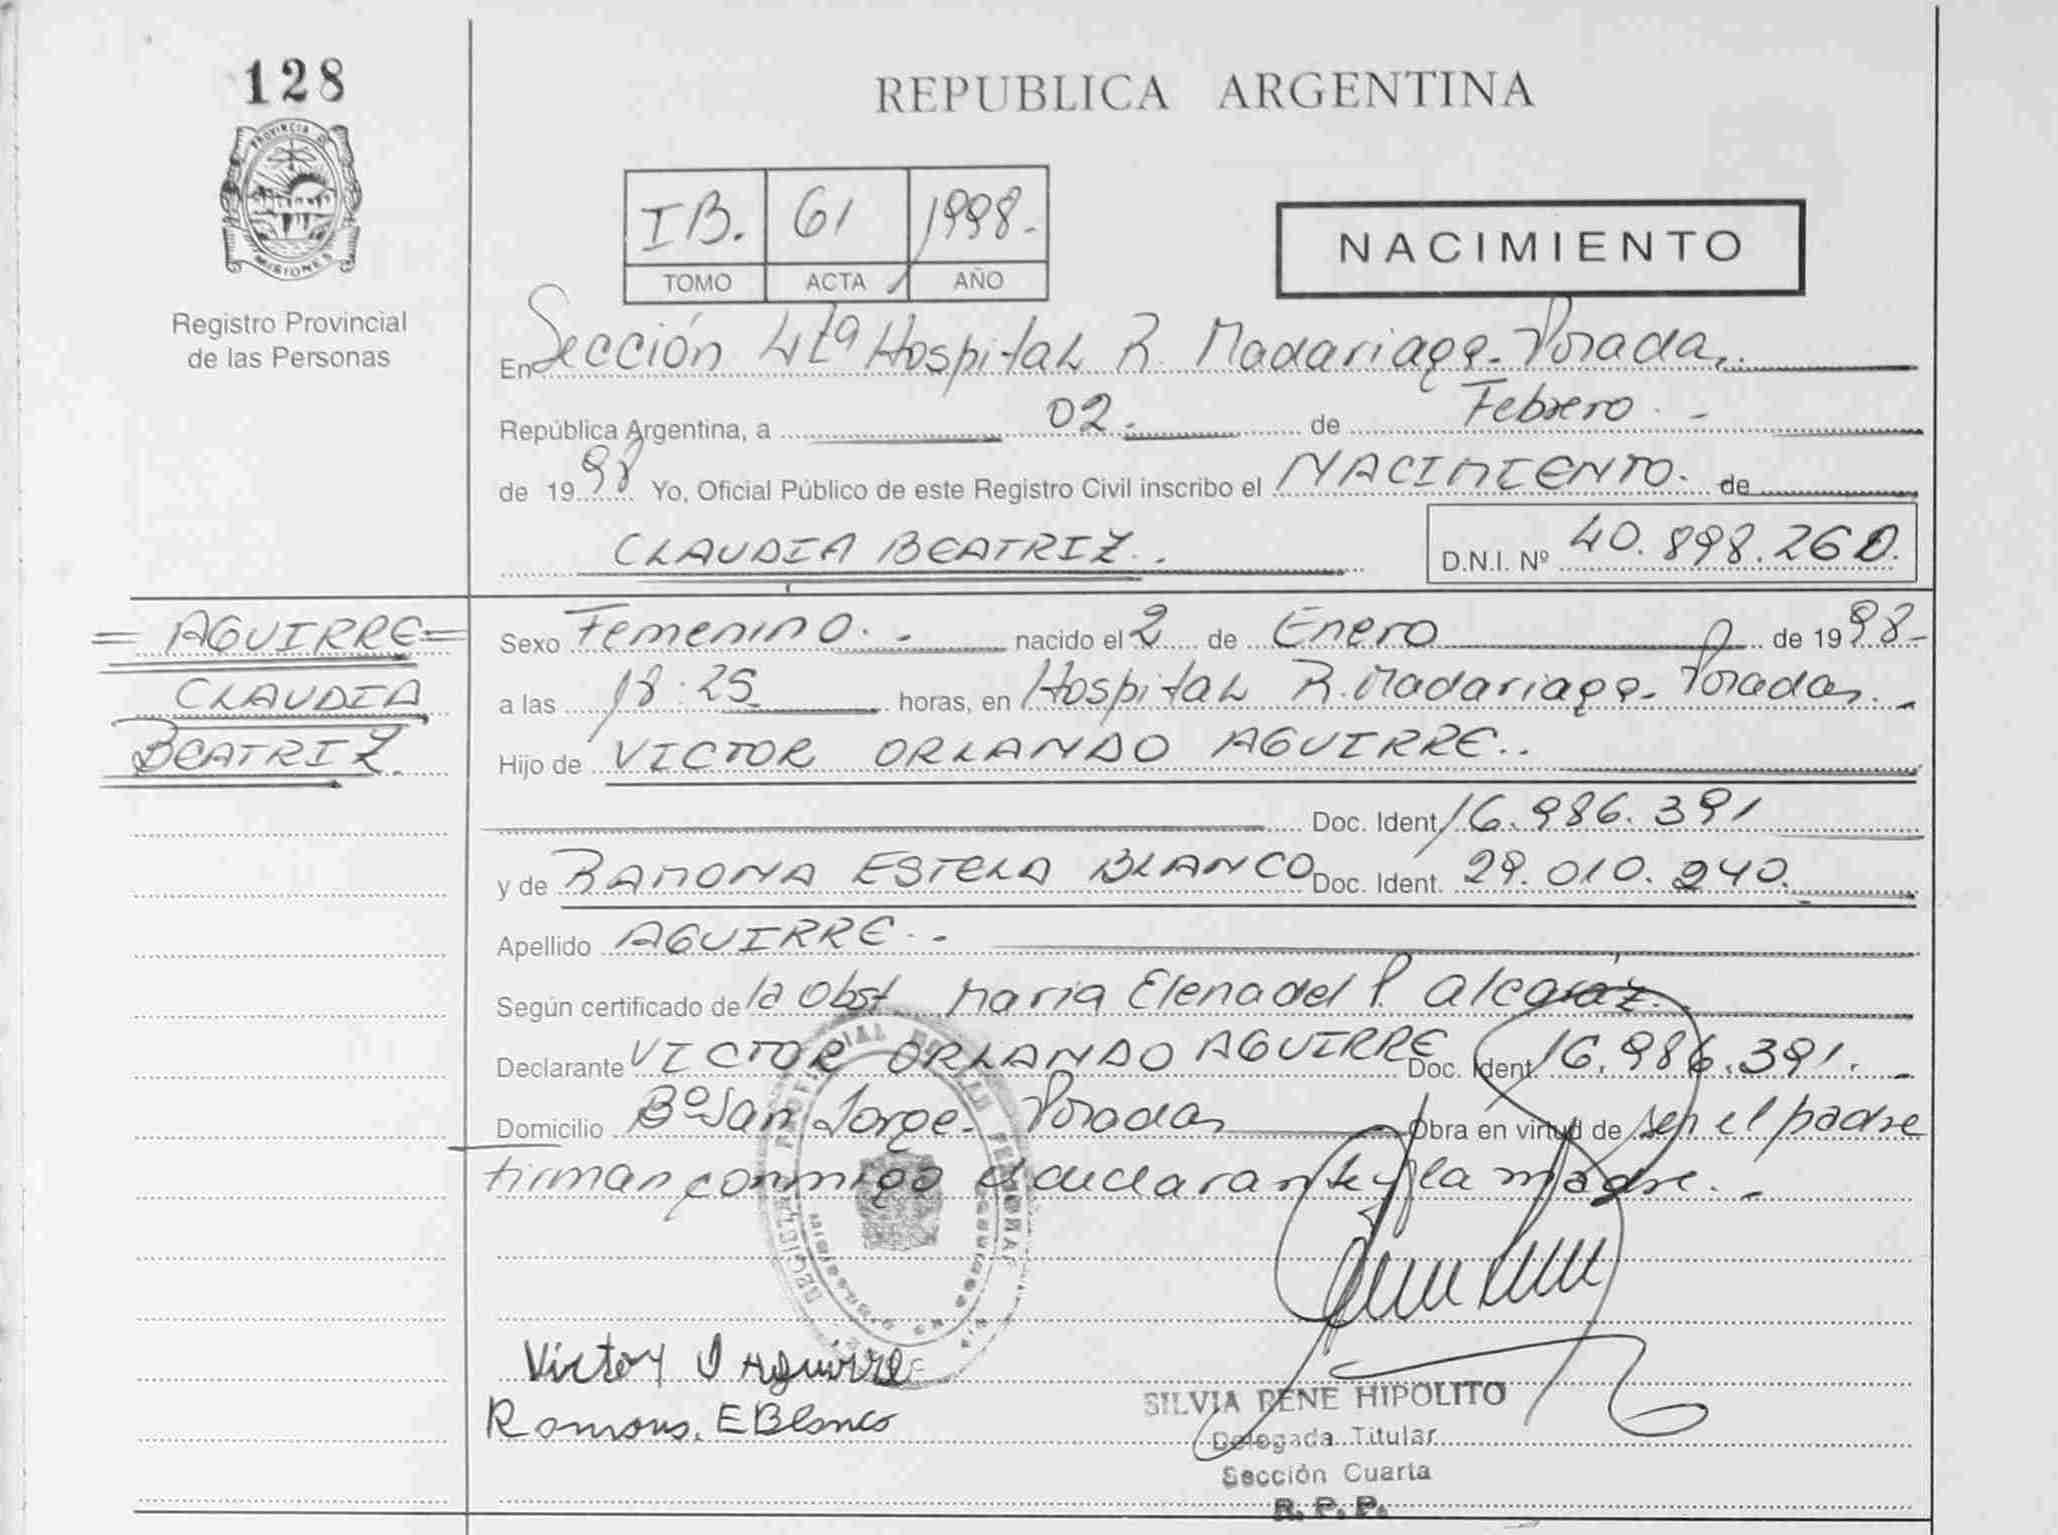 128
PROVINCIA DE
MISIONES
Registro Provincial
de las Personas
REPUBLICA ARGENTINA
IB. 61 1998.-
TOMO ACTA AÑO
NACIMIENTO
En Sección 4ta Hospital R. Madariaga - Posadas.
República Argentina, a 02.- de Febrero.-
de 1998 Yo, Oficial Público de este Registro Civil inscribo el NACIMIENTO. de
CLAUDIA BEATRIZ.. D.N.I. Nº 40.898.260.
= AGUIRRE =
CLAUDIA
BEATRIZ.
Sexo Femenino.- nacido el 2 de Enero de 1998.-
a las 18:25 horas, en Hospital R. Madariaga - Posadas.-
Hijo de VICTOR ORLANDO AGUIRRE..
Doc. Ident. 16.986.391
y de RAMONA ESTELA BLANCO Doc. Ident. 29.010.240.
Apellido AGUIRRE.-
Según certificado de la Obst. Maria Elena del P. Alcaráz.-
Declarante VICTOR ORLANDO AGUIRRE Doc. Ident. 16.986.391.-
Domicilio Bº San Jorge - Posadas Obra en virtud de ser el padre
firman conmigo el declarante y la madre.-
Victor O Aguirre
Ramona. E Blanco
SILVIA RENE HIPOLITO
Delegada Titular
Sección Cuarta
R. P. P.